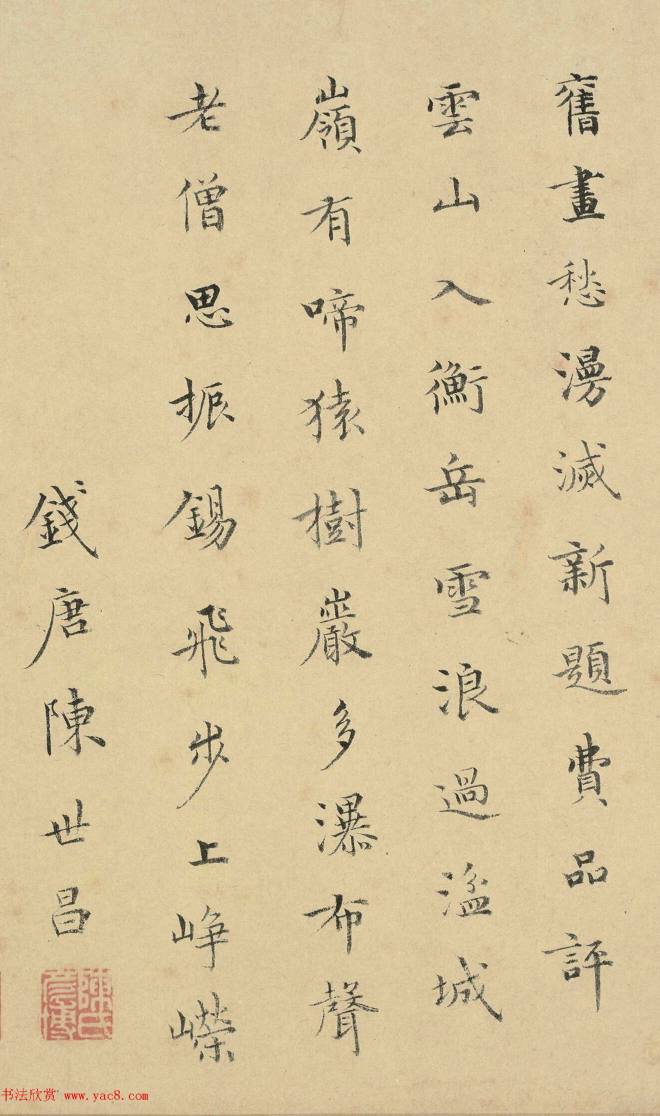 舊畫愁漫滅新題費品評
雲山入衡岳雪浪過湓城
嶺有啼猿樹巖多瀑布聲
老僧思振錫飛步上崢嶸
錢唐陳世昌
陳氏彥博
书法欣赏 www.yac8.com